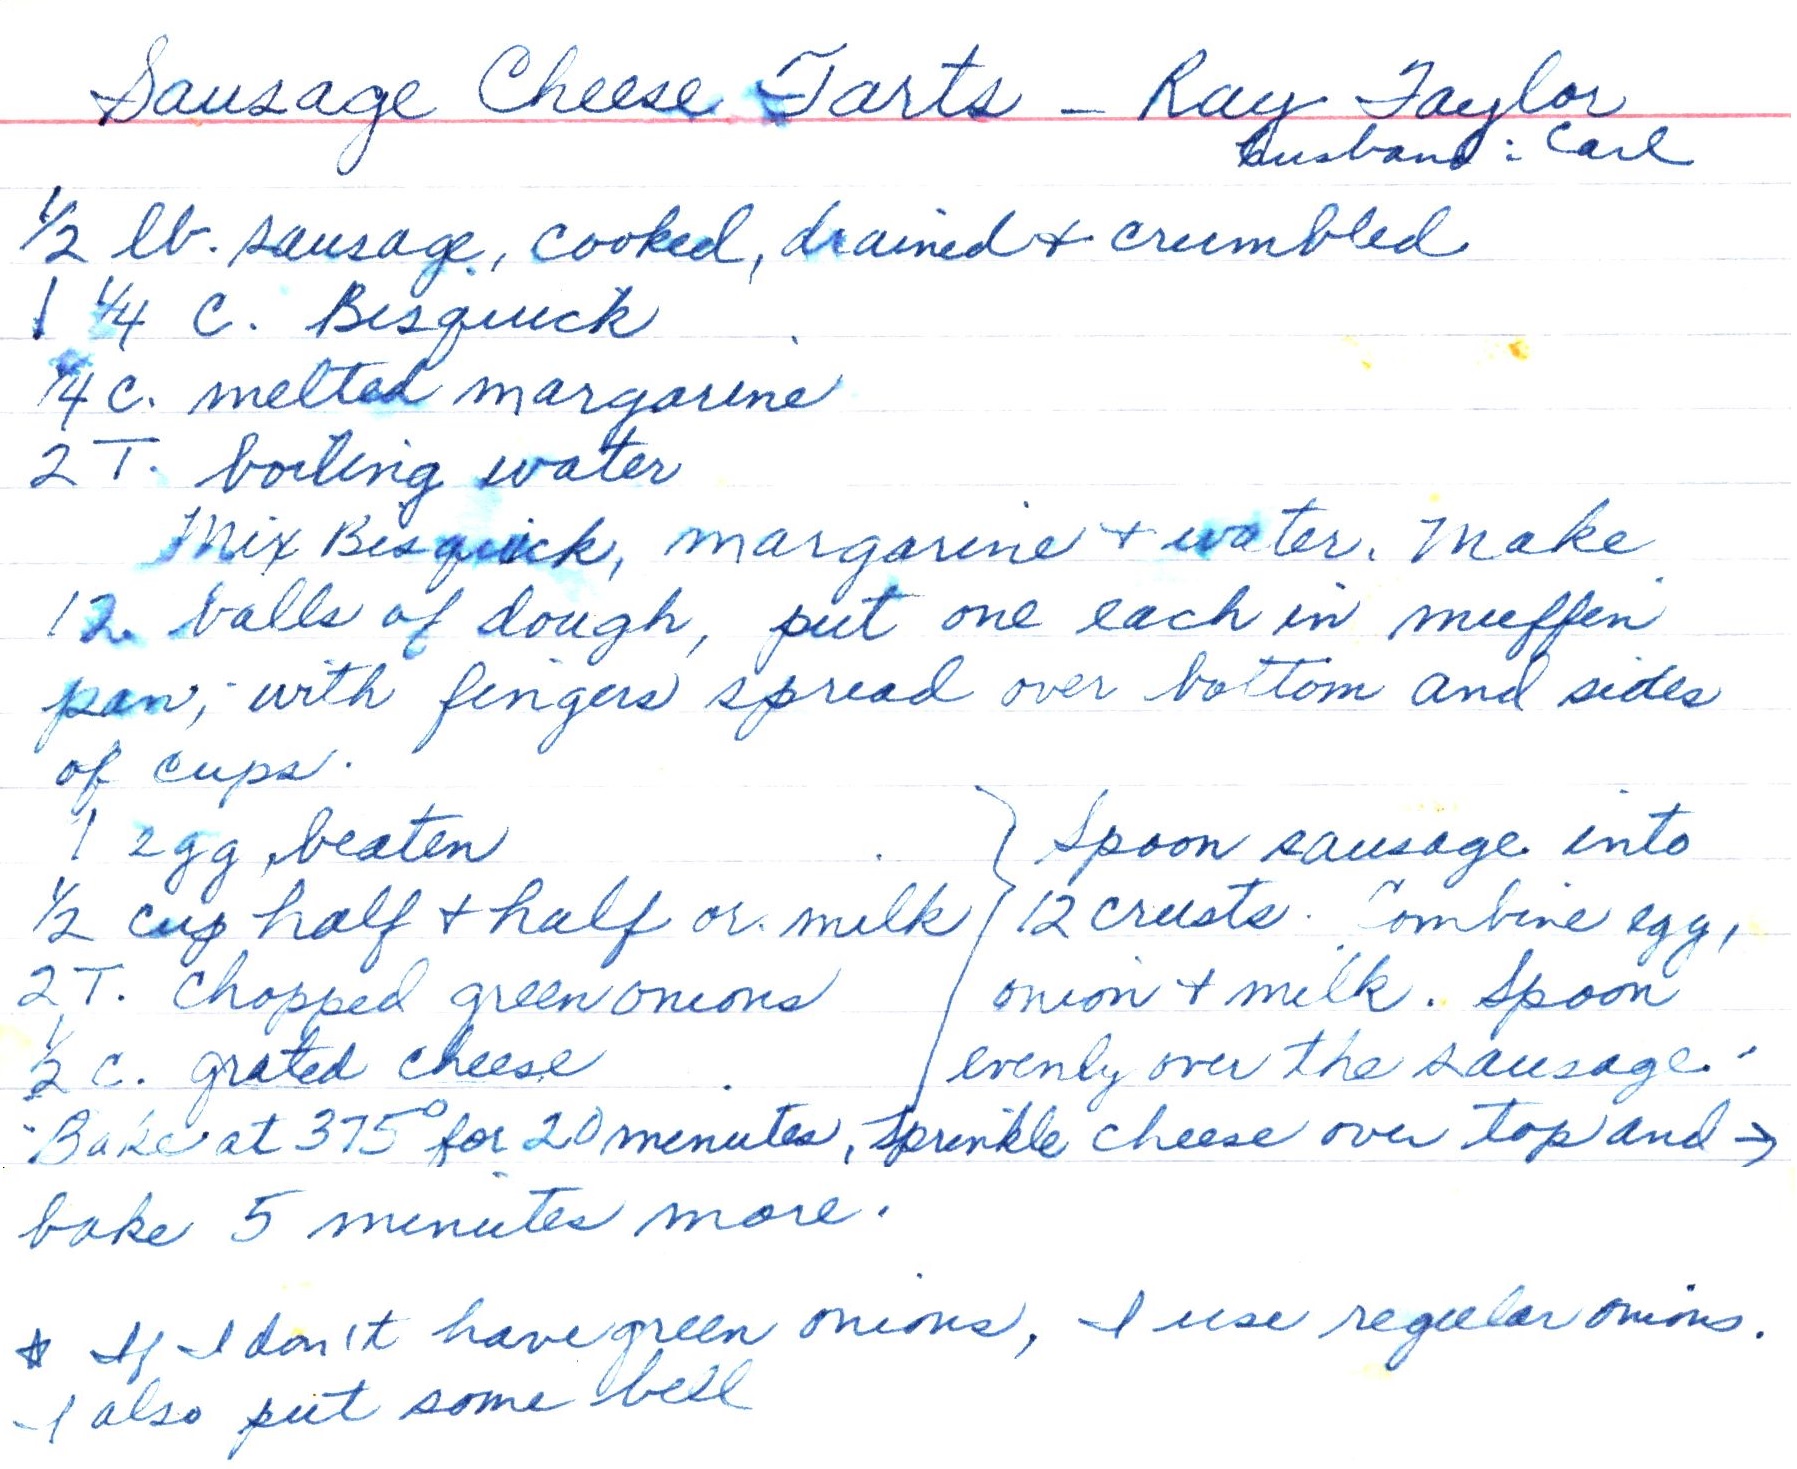 Sausage Cheese Tarts - Ray Taylor
husband: Carl
1/2 lb. sausage, cooked, drained + crumbled
1 1/4 C. Bisquick
1/4 C. melted margarine
2 T. boiling water
Mix Bisquick, margarine + water. Make
12 balls of dough, put one each in muffin
pan; with fingers spread over bottom and sides
of cups.
1 egg, beaten
1/2 cup half + half or milk
2 T. chopped green onions
1/2 c. grated cheese
} Spoon sausage into
12 crusts. Combine egg,
onion + milk. Spoon
evenly over the sausage.
Bake at 375° for 20 minutes, sprinkle cheese over top and →
bake 5 minutes more.
* If I don't have green onions, I use regular onions.
I also put some bell